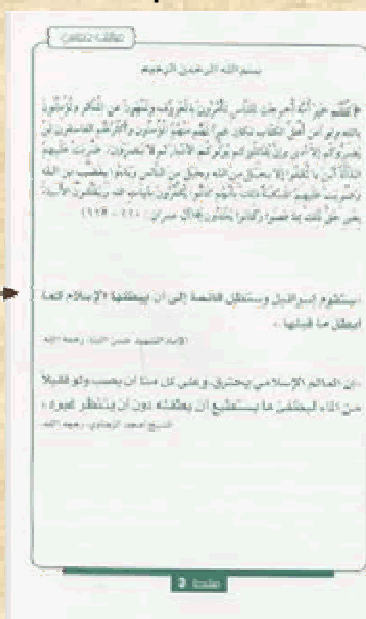 ميثاق حماس
بسم الله الرحمن الرحيم
﴿ كُنْتُمْ خَيْرَ أُمَّةٍ أُخْرِجَتْ لِلنَّاسِ تَأْمُرُونَ بِالْمَعْرُوفِ وَتَنْهَوْنَ عَنِ الْمُنْكَرِ وَتُؤْمِنُونَ
بِاللَّهِ وَلَوْ آمَنَ أَهْلُ الْكِتَابِ لَكَانَ خَيْرًا لَهُمْ مِنْهُمُ الْمُؤْمِنُونَ وَأَكْثَرُهُمُ الْفَاسِقُونَ لَنْ
يَضُرُّوكُمْ إِلَّا أَذًى وَإِنْ يُقَاتِلُوكُمْ يُوَلُّوكُمُ الْأَدْبَارَ ثُمَّ لَا يُنْصَرُونَ. ضُرِبَتْ عَلَيْهِمُ
الذِّلَّةُ أَيْنَ مَا ثُقِفُوا إِلَّا بِحَبْلٍ مِنَ اللَّهِ وَحَبْلٍ مِنَ النَّاسِ وَبَاءُوا بِغَضَبٍ مِنَ اللَّهِ
وَضُرِبَتْ عَلَيْهِمُ الْمَسْكَنَةُ ذَلِكَ بِأَنَّهُمْ كَانُوا يَكْفُرُونَ بِآيَاتِ اللَّهِ وَيَقْتُلُونَ الْأَنْبِيَاءَ
بِغَيْرِ حَقٍّ ذَلِكَ بِمَا عَصَوْا وَكَانُوا يَعْتَدُونَ﴾ (آل عمران : ١١٠ - ١١٢)
ستقوم إسرائيل وستظل قائمة إلى أن يبطلها الإسلام كما
أبطل ما قبلها .
الإمام الشهيد حسن البنا، رحمه الله
إن العالم الإسلامي يحترق، وعلى كل منا أن يصب ولو قليلاً
من الماء ليطفئ ما يستطيع أن يطفئه دون أن ينتظر غيره .
الشيخ أمجد الزهاوي، رحمه الله
صفحة 3